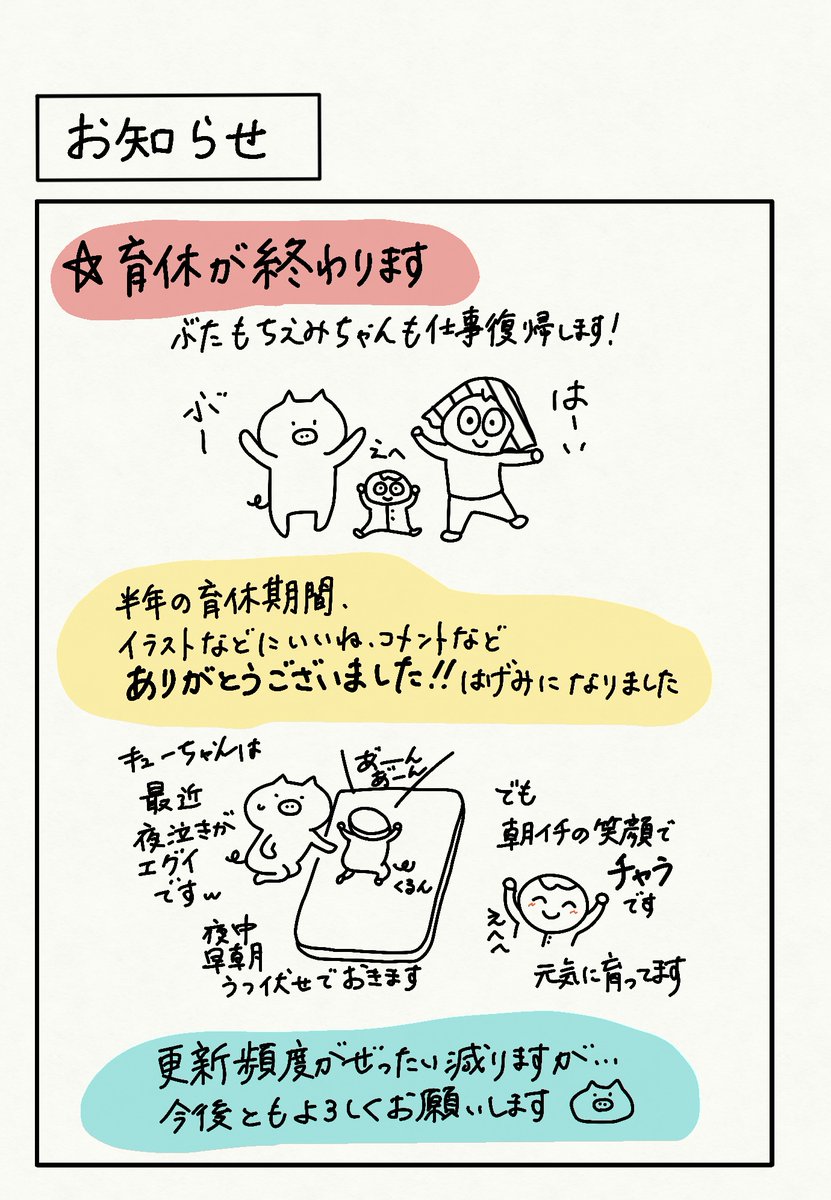 お知らせ
☆育休が終わります
ぶたもちえみちゃんも仕事復帰します!
ぶー
えへ
はーい
半年の育休期間、
イラストなどにいいね、コメントなど
ありがとうございました!!はげみになりました
キューちゃんは
最近
夜泣きが
エグイ
ですw
あ゛ーん
あ゛ーん
くるん
夜中
早朝
うつ伏せでおきます
でも
朝イチの笑顔で
チャラ
です
えへへ
元気に育ってます
更新頻度がぜったい減りますが…
今後ともよろしくお願いします